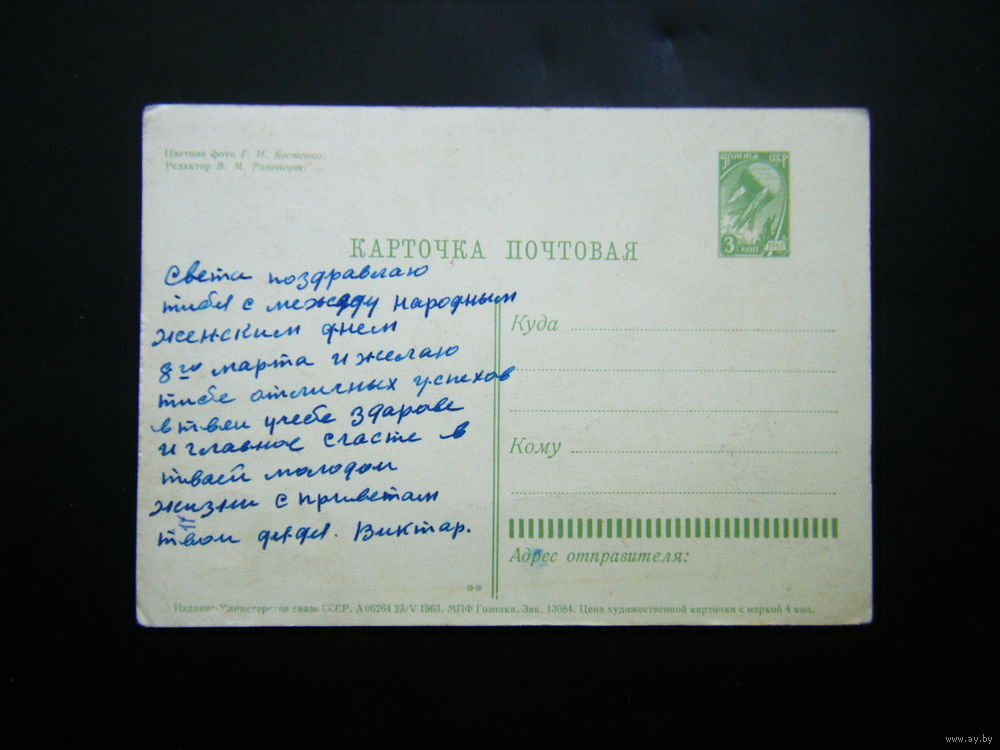 Цветное фото Г. И. Костенко.
Редактор В. М. Рапопорт.
ПОЧТА СССР
3 КОП 1961
КАРТОЧКА ПОЧТОВАЯ
Света поздравлаю
тибя с между народным
женским днем
8го марта и желаю
тибе отличных успехов
в твеи учебе Здарове
и главное счасте в
тваей молодом
жизни с приветам
твои дядя. Виктар.
Куда
Кому
Адрес отправителя:
**
Издание Министерства связи СССР. А 06264 23/V 1963. МПФ Гознака. Зак. 13084. Цена художественной карточки с маркой 4 коп.
www.ay.by